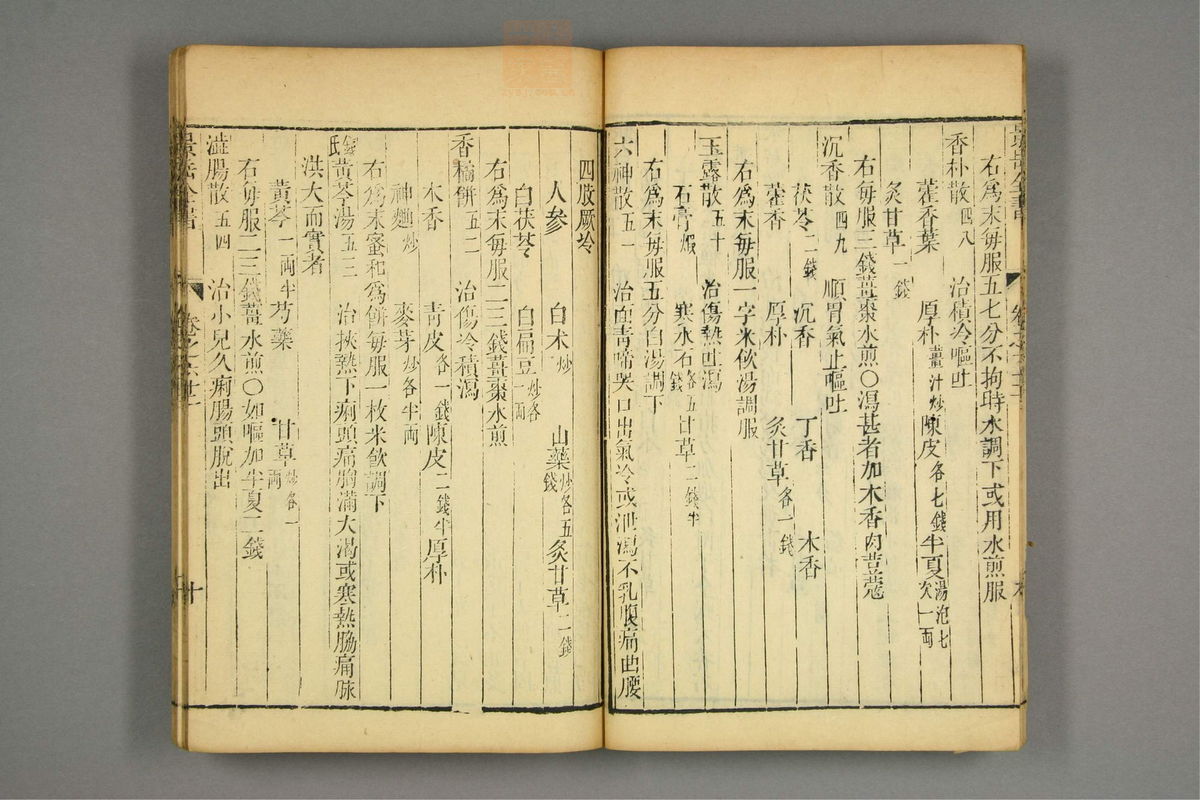 右爲末每服五七分不拘時水調下或用水煎服
香朴散四八 治積冷嘔吐
藿香葉 厚朴薑汁炒 陳皮各七錢 半夏湯泡七次一兩
炙甘草一錢
右每服三錢薑棗水煎〇瀉甚者加木香肉荳蔻
沉香散四九 順胃氣止嘔吐
茯苓二錢 沉香 丁香 木香
藿香 厚朴 炙甘草各一錢
右爲末每服一字米飲湯調服
玉露散五十 治傷熱吐瀉
石膏煆 寒水石各五錢 甘草二錢半
右爲末每服五分白湯調下
六神散五一 治面青啼哭口出氣冷或泄瀉不乳腹痛曲腰
四股厥冷
人參 白朮炒 山藥炒各五錢 炙甘草二錢
白茯苓 白扁豆炒各一兩
右爲末每服二三錢薑棗水煎
香橘餅五二 治傷冷積瀉
木香 青皮各一錢 陳皮二錢半 厚朴
神麯炒 麥芽炒各半兩
右爲末蜜和爲餅每服一枚米飲調下
錢氏黃芩湯五三 治挾熱下痢頭痛胸滿大渴或寒熱脇痛脉
洪大而實者
黃芩一兩半 芍藥 甘草炒各一兩
右每服二三錢薑水煎〇如嘔加半夏二錢
澁腸散五四 治小兒久痢腸頭脫出
景岳全書 卷之六十二 十